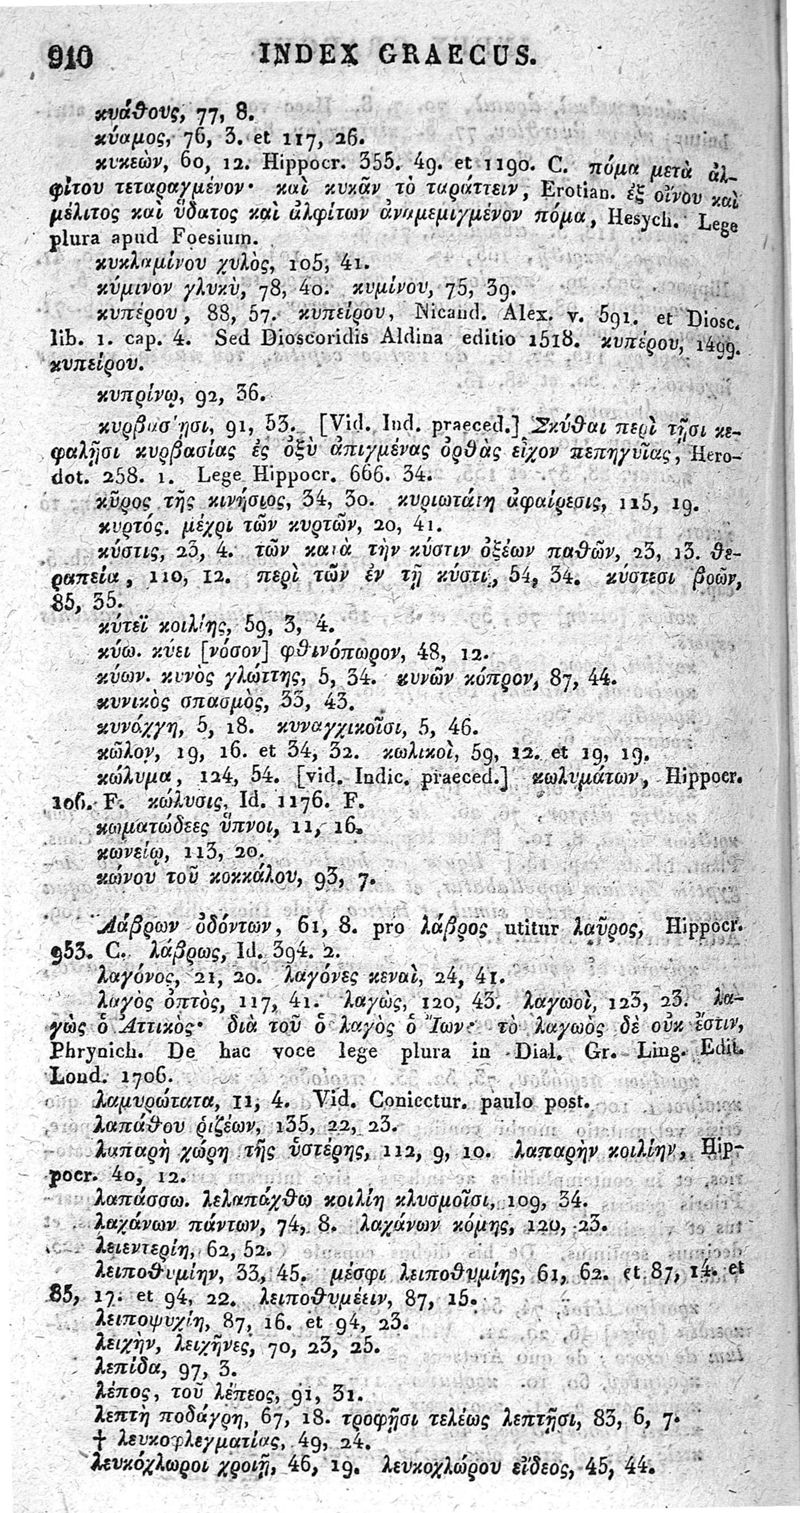 910 INDEX GRAECUS.
κυάθους, 77, 8.
κύαμος, 76, 3. et 117, 26.
κυκεὼν, 60, 12. Hippocr. 355. 49. et 1190. C. πόμα μετὰ ἀλ-
φίτου τεταραγμένον· καὶ κυκᾶν τὸ ταράττειν, Erotian. ἐξ οἴνου καὶ
μέλιτος καὶ ὕδατος καὶ ἀλφίτων ἀναμεμιγμένον πόμα, Hesych. Lege
plura apud Foesium.
κυκλαμίνου χυλὸς, 105, 41.
κύμινον γλυκὺ, 78, 40. κυμίνου, 75, 39.
κυπέρου, 88, 57. κυπείρου, Nicand. Alex. v. 591. et Diosc.
lib. 1. cap. 4. Sed Dioscoridis Aldina editio 1518. κυπέρου, 1499.
κυπείρου.
κυπρίνῳ, 92, 36.
κυρβασίῃσι, 91, 53. [Vid. Ind. praeced.] Σκύθαι περὶ τῇσι κε-
φαλῇσι κυρβασίας ἐς ὀξὺ ἀπιγμένας ὀρθὰς εἶχον πεπηγυῖας, Hero-
dot. 258. 1. Lege Hippocr. 666. 34.
κῦρος τῆς κινήσιος, 34, 30. κυριωτάτη ἀφαίρεσις, 115, 19.
κυρτός. μέχρι τῶν κυρτῶν, 20, 41.
κύστις, 23, 4. τῶν κατὰ τὴν κύστιν ὀξέων παθῶν, 23, 13. θε-
ραπεία, 110, 12. περὶ τῶν ἐν τῇ κύστι, 54, 34. κύστεσι βοῶν,
85, 35.
κύτεϊ κοιλίης, 59, 3, 4.
κύω. κύει [νόσον] φθινόπωρον, 48, 12.
κύων. κυνὸς γλώττης, 5, 34. κυνῶν κόπρον, 87, 44.
κυνικὸς σπασμὸς, 33, 43.
κυνάγχη, 5, 18. κυναγχικοῖσι, 5, 46.
κῶλον, 19, 16. et 34, 32. κωλικοὶ, 59, 12. et 19, 19.
κώλυμα, 124, 54. [vid. Indic. praeced.] κωλυμάτων, Hippocr.
106. F. κώλυσις, Id. 1176. F.
κωματώδεες ὕπνοι, 11, 16.
κωνείῳ, 113, 20.
κώνου τοῦ κοκκάλου, 93, 7.
Λάβρων ὀδόντων, 61, 8. pro λάβρος utitur λαῦρος, Hippocr.
953. C. λάβρως, Id. 394. 2.
λαγόνος, 21, 20. λαγόνες κεναὶ, 24, 41.
λαγὸς ὀπτὸς, 117, 41. λαγὼς, 120, 43. λαγωοὶ, 123, 23. λα-
γὼς ὁ Ἀττικὸς· διὰ τοῦ ὁ λαγὸς ὁ Ἴων· τὸ λαγωὸς δὲ οὐκ ἔστιν,
Phrynich. De hac voce lege plura in Dial. Gr. Ling. Edit.
Lond. 1706.
λαμυρώτατα, 11, 4. Vid. Coniectur. paulo post.
λαπάθου ῥιζέων, 135, 22, 23.
λαπαρὴ χώρη τῆς ὑστέρης, 112, 9, 10. λαπαρὴν κοιλίην, Hip-
pocr. 40, 12.
λαπάσσω. λελαπάχθω κοιλίη κλυσμοῖσι, 109, 34.
λαχάνων πάντων, 74, 8. λαχάνων κόμης, 120, 23.
λειεντερίη, 62, 52.
λειποθυμίην, 33, 45. μέσφι λειποθυμίης, 61, 62. et 87, 14. et
85, 17. et 94, 22. λειποθυμέειν, 87, 15.
λειποψυχίη, 87, 16. et 94, 23.
λειχὴν, λειχῆνες, 70, 23, 25.
λεπίδα, 97, 3.
λέπος, τοῦ λέπεος, 91, 31.
λεπτὴ ποδάγρη, 67, 18. τροφῇσι τελέως λεπτῇσι, 83, 6, 7.
† λευκοφλεγματίας, 49, 24.
λευκόχλωροι χροιῇ, 46, 19. λευκοχλώρου εἴδεος, 45, 44.